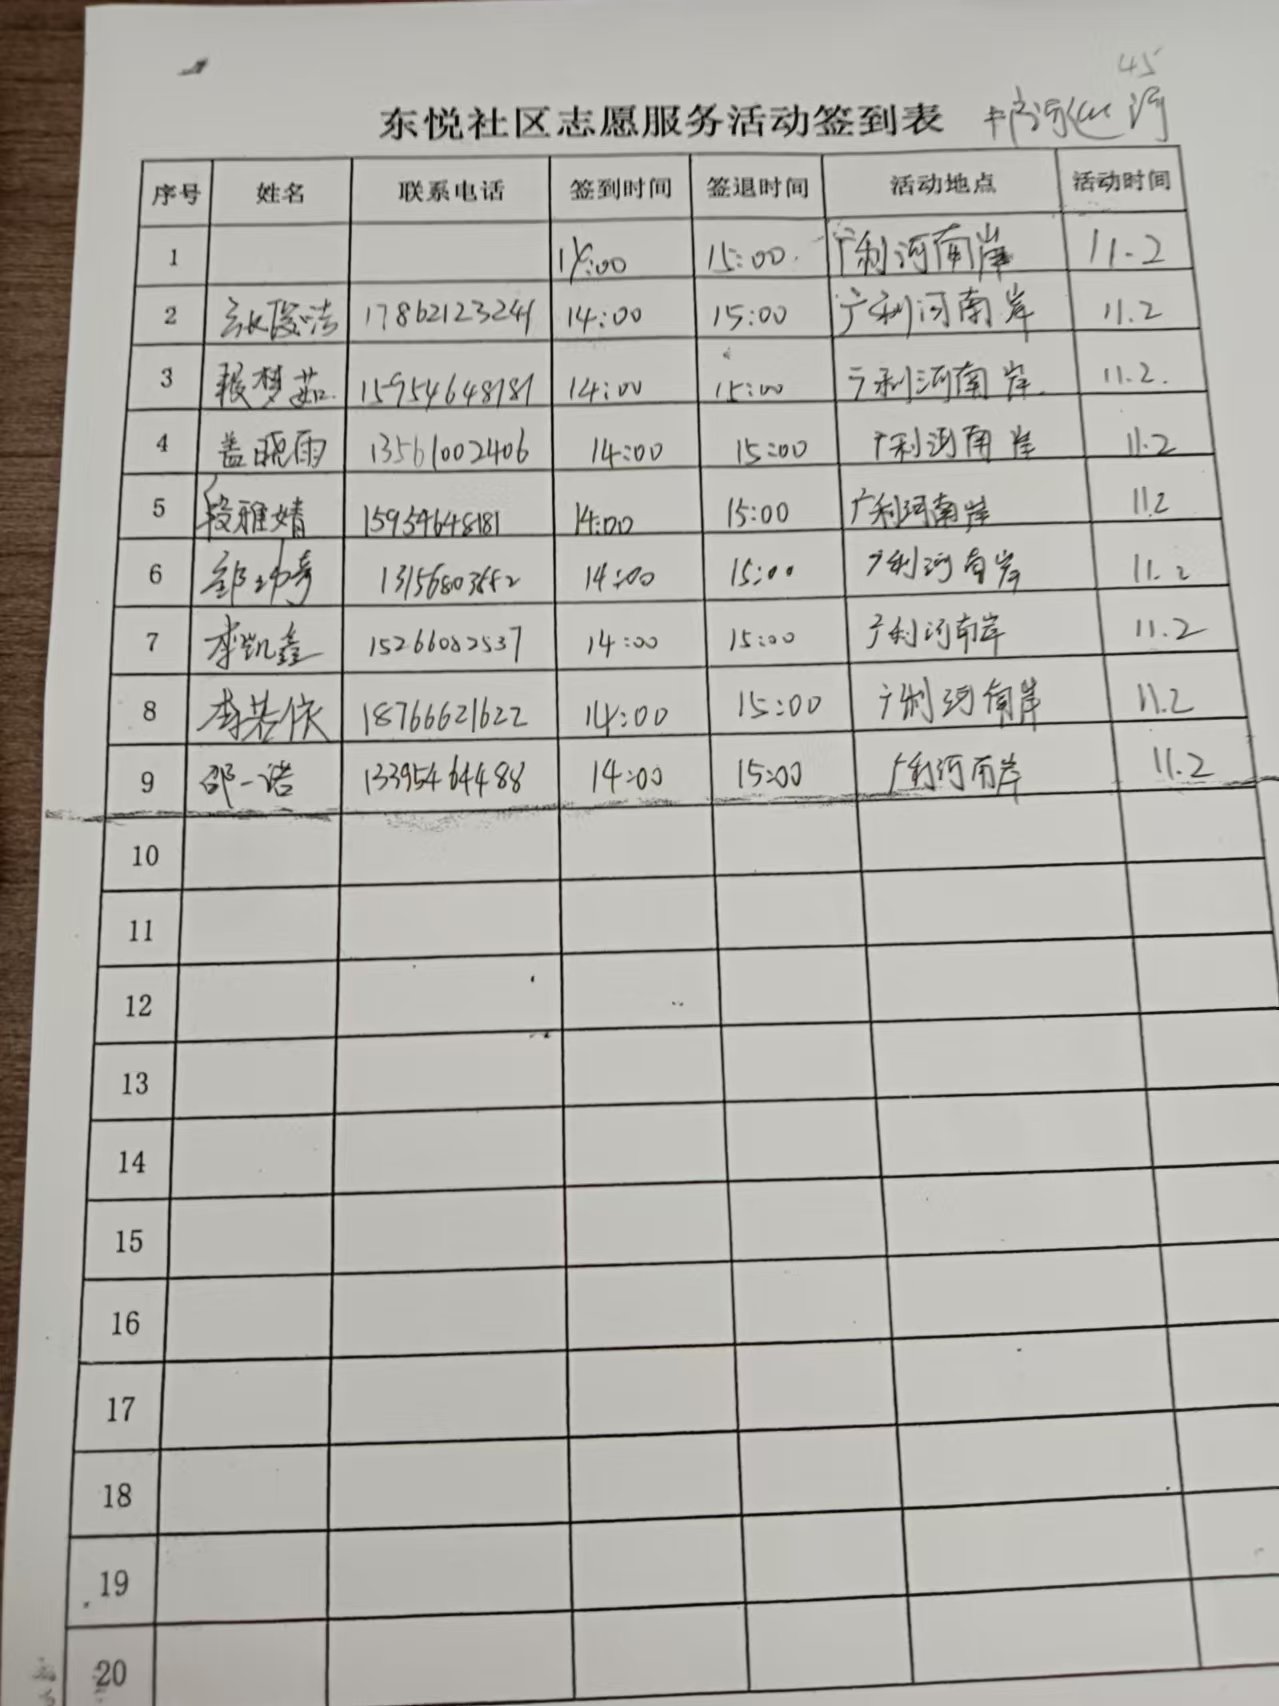 45
东悦社区志愿服务活动签到表
序号 姓名 联系电话 签到时间 签退时间 活动地点 活动时间
1 14:00 15:00 广利河南岸 11.2
2 17862123241 14:00 15:00 广利河南岸 11.2
3 段梦茹 15954648181 14:00 15:00 广利河南岸 11.2
4 盖晓雨 13561002406 14:00 15:00 广利河南岸 11.2
5 段雅婧 15954648181 14:00 15:00 广利河南岸 11.2
6 14:00 15:00 广利河南岸 11.2
7 李凯鑫 15266082537 14:00 15:00 广利河南岸 11.2
8 李若依 18766621622 14:00 15:00 广利河南岸 11.2
9 邵一诺 13395464488 14:00 15:00 广利河南岸 11.2
10
11
12
13
14
15
16
17
18
19
20